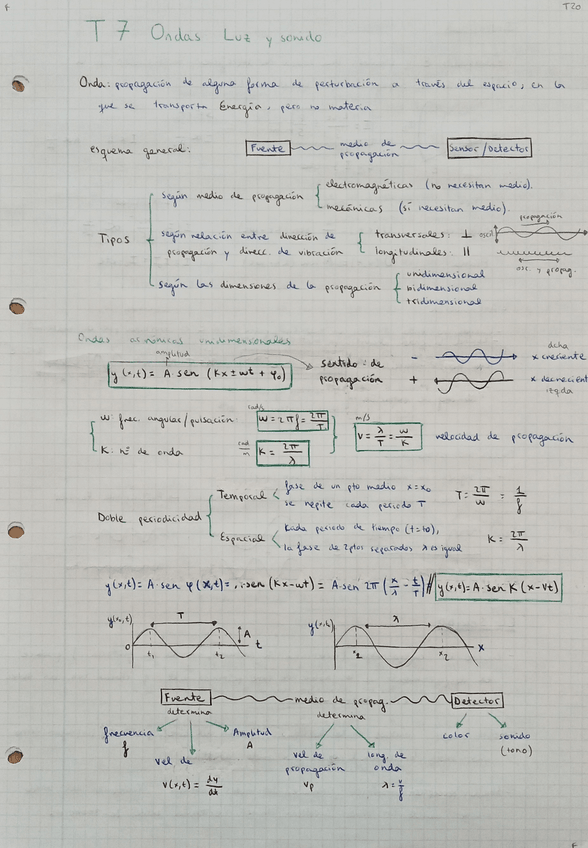 T20
T 7 Ondas Luz y sonido
Onda: propagación de alguna forma de perturbación a través del espacio, en la
que se transporta Energía, pero no materia
esquema general: Fuente medio de propagación Sensor/Detector
Tipos
según medio de propagación
electromagnéticas (no necesitan medio).
mecánicas (sí necesitan medio).
según relación entre dirección de
propagación y direcc. de vibración
transversales: ⊥
longitudinales: ||
propagación
oscil
osc. y propag.
según las dimensiones de la propagación
unidimensional
bidimensional
tridimensional
Ondas armónicas unidimensionales
amplitud
y(x,t) = A · sen (Kx ± wt + φ₀)
sentido: de
propagación
- x creciente
dcha
+ x decrecient
izqda
w: frec. angular/pulsación rad/s w = 2πf = 2π/T
K: nº de onda rad/m K = 2π/λ
m/s
v = λ/T = w/K velocidad de propagación
Doble periodicidad
Temporal
fase de un pto medio x=x₀
se repite cada periodo T
T = 2π/w = 1/f
Espacial
Kada periodo de tiempo (t=t₀),
la fase de 2ptos separados λ es igual
K = 2π/λ
y(x,t) = A·sen φ(x,t) = A·sen (Kx-wt) = A·sen 2π (x/λ - t/T) // y(x,t) = A·sen K (x-vt)
y(x₀,t) T A 0 t₁ t₂ t
y(x,t₀) λ x₁ x₂ x
Fuente medio de propag. Detector
determina determina
frecuencia
f
vel de
v(x,t) = dy/dt
Amplitud
A
vel de
propagación
vp
long. de
onda
λ = v/f
color
sonido
(tono)